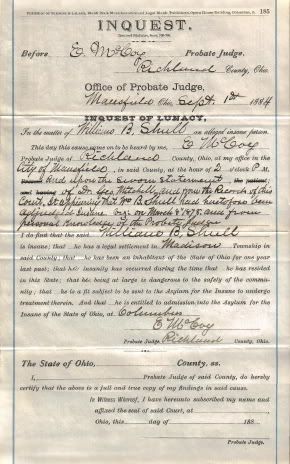 185
INQUEST.
Before E. McCoy Probate Judge.
Richland County, Ohio.
Office of Probate Judge,
Mansfield Ohio, Sept. 1st 1884
INQUEST OF LUNACY,
In the matter of William B. Shull an alleged insane person.
This day this cause came on to be heard by me, E McCoy
Probate Judge of Richland County, Ohio, at my office in the
City of Mansfield, in said County, at the hour of 2 o'clock P. M.
and upon the sworn statement
of Dr. Geo Mitchell, and from the Records of this
Court, it appearing that Wm B. Shull had heretofore been
adjudged Insane on March 4" 1878, and from
personal knowledge of the Probate Judge
I do find that the said William B. Shull
is insane; that he has a legal settlement in Madison Township in
said County; that he has been an inhabitant of the State of Ohio for one year
last past; that his insanity has occurred during the time that he has resided
in this State; that his being at large is dangerous to the safety of the com-
munity; that he is a fit subject to be sent to the Asylum for the Insane to undergo
treatment therein. And that he is entitled to admission into the Asylum for the
Insane of the State of Ohio, at Columbus
E McCoy
Probate Judge Richland County, Ohio.
The State of Ohio, County, ss.
I, Probate Judge of said County, do hereby
certify that the above is a full and true copy of my findings in said cause.
In Witness Whereof, I have hereunto subscribed my name and
affixed the seal of said Court, at
Ohio, this day of 188
Probate Judge.